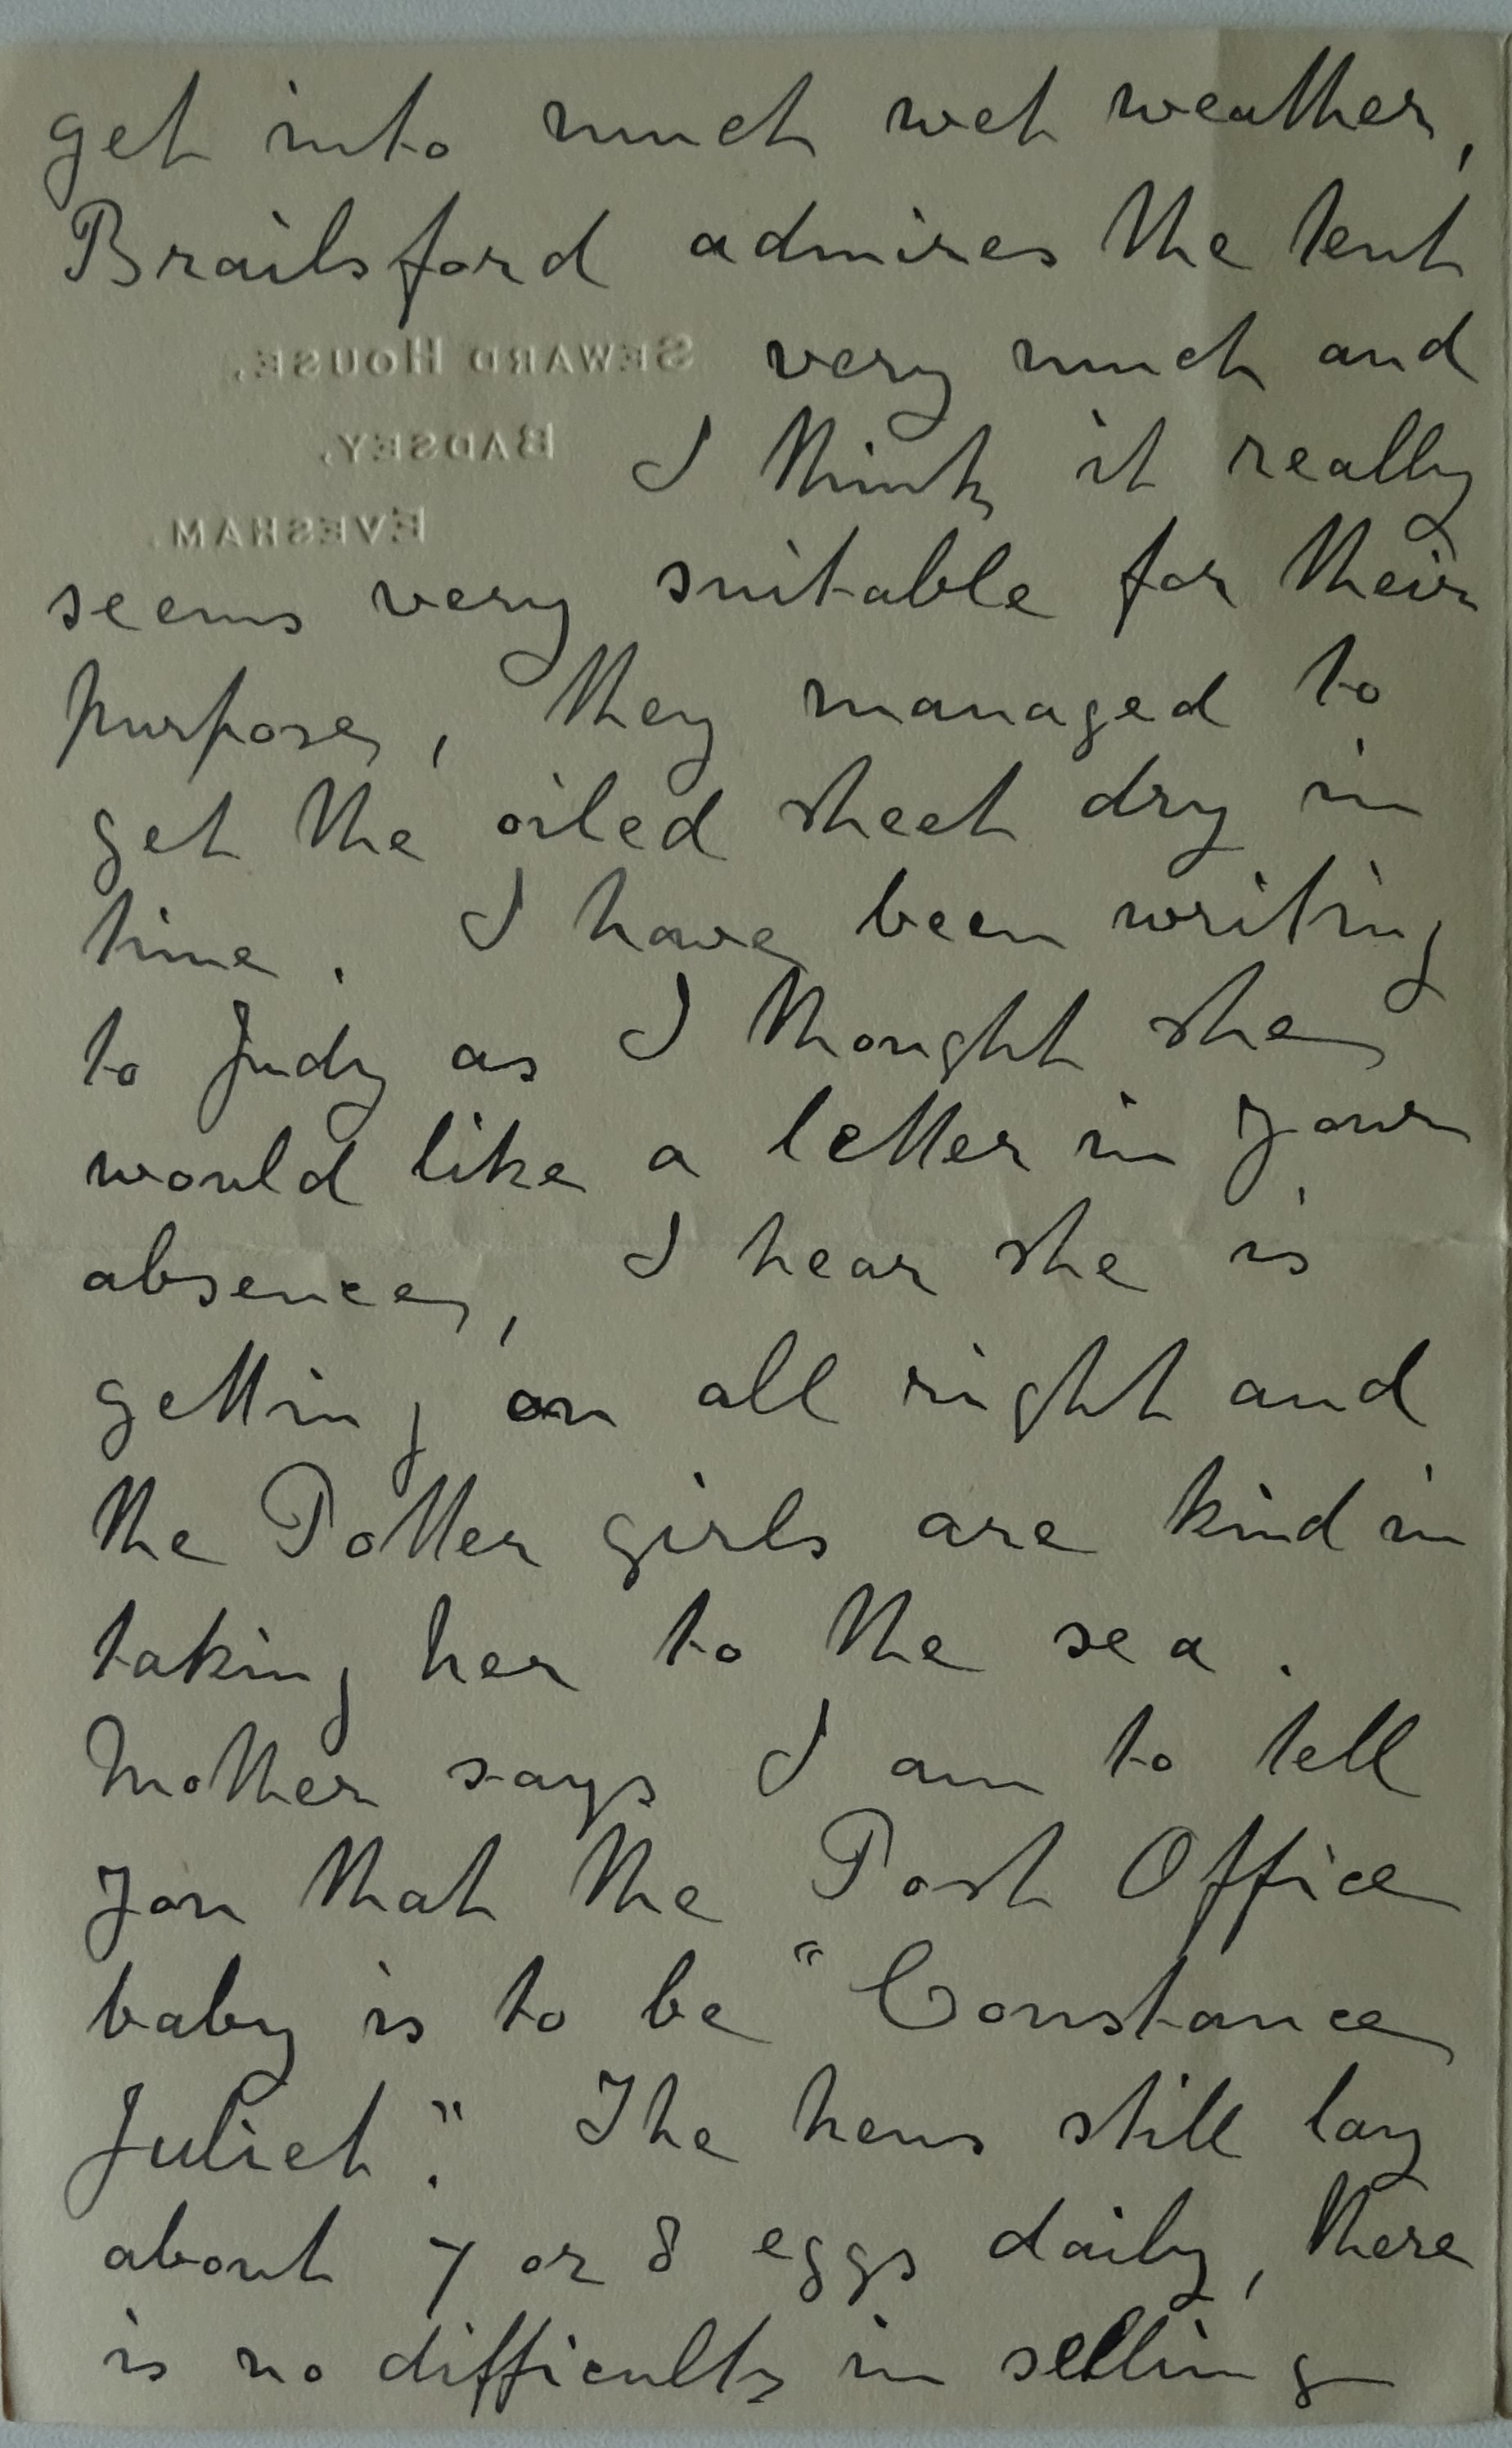 get into much wet weather,
Brailsford admires the tent
SEWARD HOUSE,
very much and
BADSEY,
I think it really
EVESHAM.
seems very suitable for their
purpose, they managed to
get the oiled sheet dry in
time. I have been writing
to Judy as I thought she
would like a letter in your
absence, I hear she is
getting on all right and
the Potter girls are kind in
taking her to the sea.
Mother says I am to tell
you that the Post Office
baby is to be "Constance
Juliet". The hens still lay
about 7 or 8 eggs daily, there
is no difficulty in selling